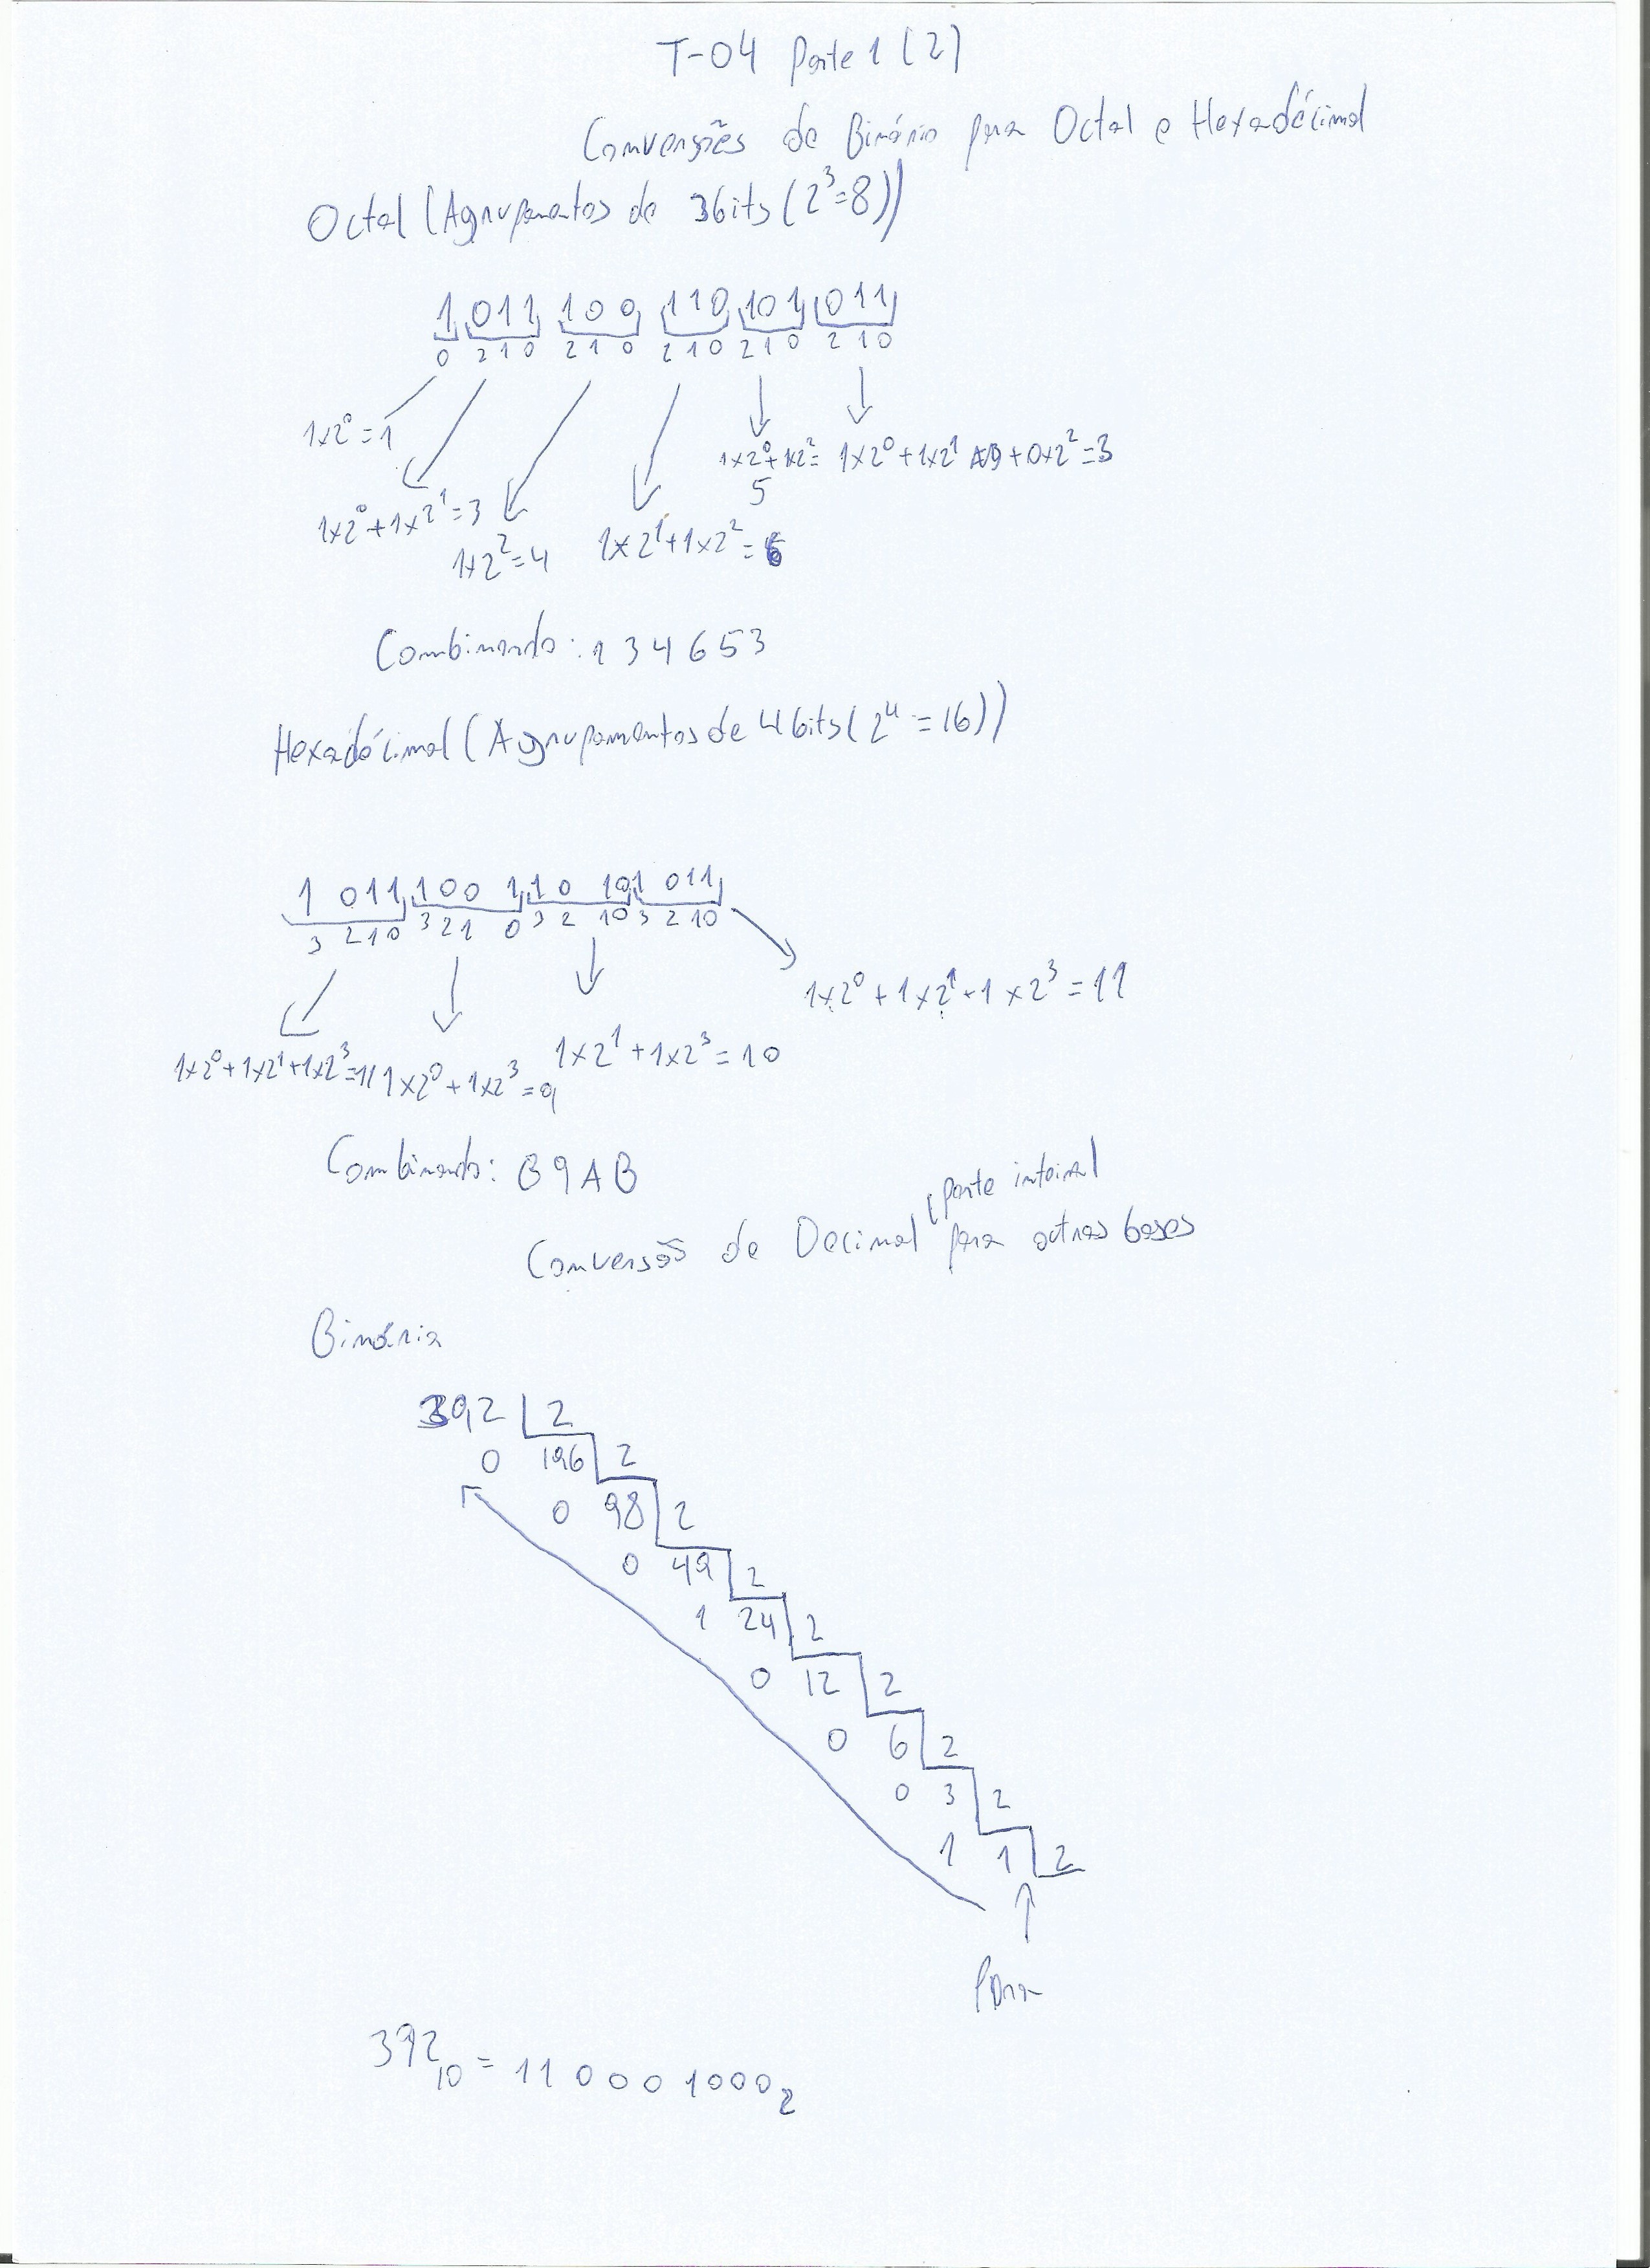 T-04 Parte 1 (2)
Conversões de Binário para Octal e Hexadécimal
Octal (Agrupamentos de 3bits (2³=8))
1 011 100 110 101 011
0 210 210 210 210 210
1x2⁰=1
1x2⁰+1x2²= 1x2⁰+1x2¹ +0x2²=3
5
1x2⁰+1x2¹=3
1x2²=4 1x2¹+1x2²=6
Combinando: 1 3 4 6 5 3
Hexadécimal (Agrupamentos de 4bits (2⁴=16))
1 011 100 1 10 10 1 011
3 210 321 0 3 2 10 3 2 10
1x2⁰+1x2¹+1x2³=11
1x2⁰+1x2¹+1x2³=11 1x2⁰+1x2³=9 1x2¹+1x2³=10
Combinando: B9AB
(parte inteira)
Conversão de Decimal para outras bases
Binária
392 2
0 196 2
0 98 2
0 49 2
1 24 2
0 12 2
0 6 2
0 3 2
1 1 2
Para
392₁₀ = 110001000₂